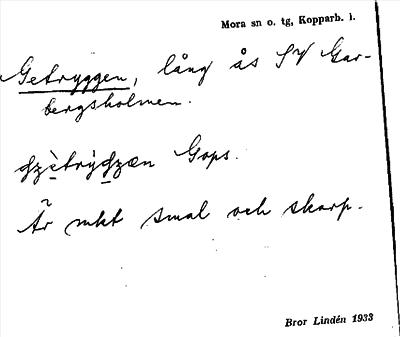 Mora sn o. tg, Kopparb. l.
Getryggen, lång ås SV Gar-
bergsholmen.
ʤzètrýʤzæn Gops.
Är mkt smal och skarp.
Bror Lindén 1933